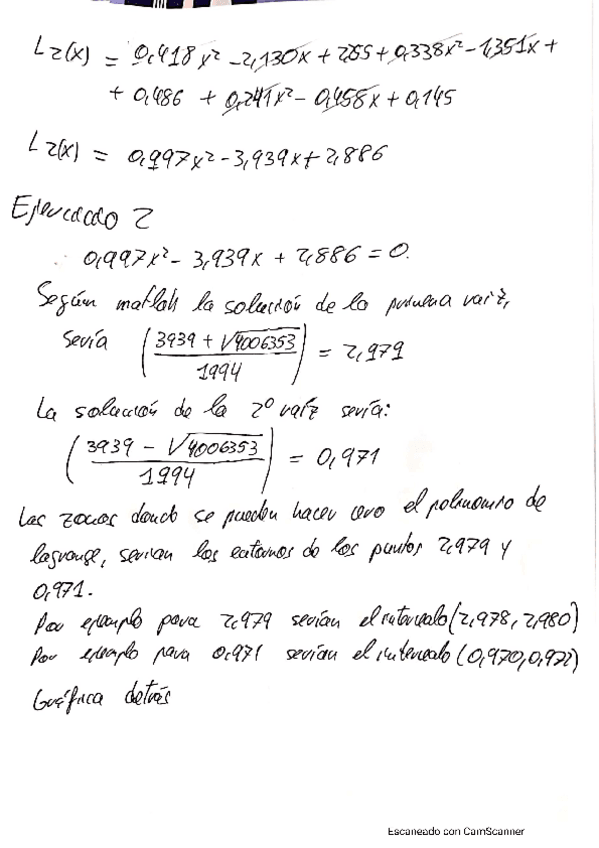 L2(x) = 0,418x² - 2,130x + 2,255 + 0,338x² - 1,351x +
+ 0,486 + 0,241x² - 0,458x + 0,145
L2(x) = 0,997x² - 3,939x + 2,886
Ejercicio 2
0,997x² - 3,939x + 2,886 = 0.
Según matlab la solución de la primera raiz,
Sería (3939 + √4006353 / 1994) = 2,979
La solución de la 2º raíz sería:
(3939 - √4006353 / 1994) = 0,971
Las zonas donde se pueden hacer cero el polinomio de
lagrange, serían los entornos de los puntos 2,979 y
0,971.
Por ejemplo para 2,979 serían el intervalo (2,978, 2,980)
Por ejemplo para 0,971 serían el intervalo (0,970, 0,972)
Gráfica detrás
Escaneado con CamScanner